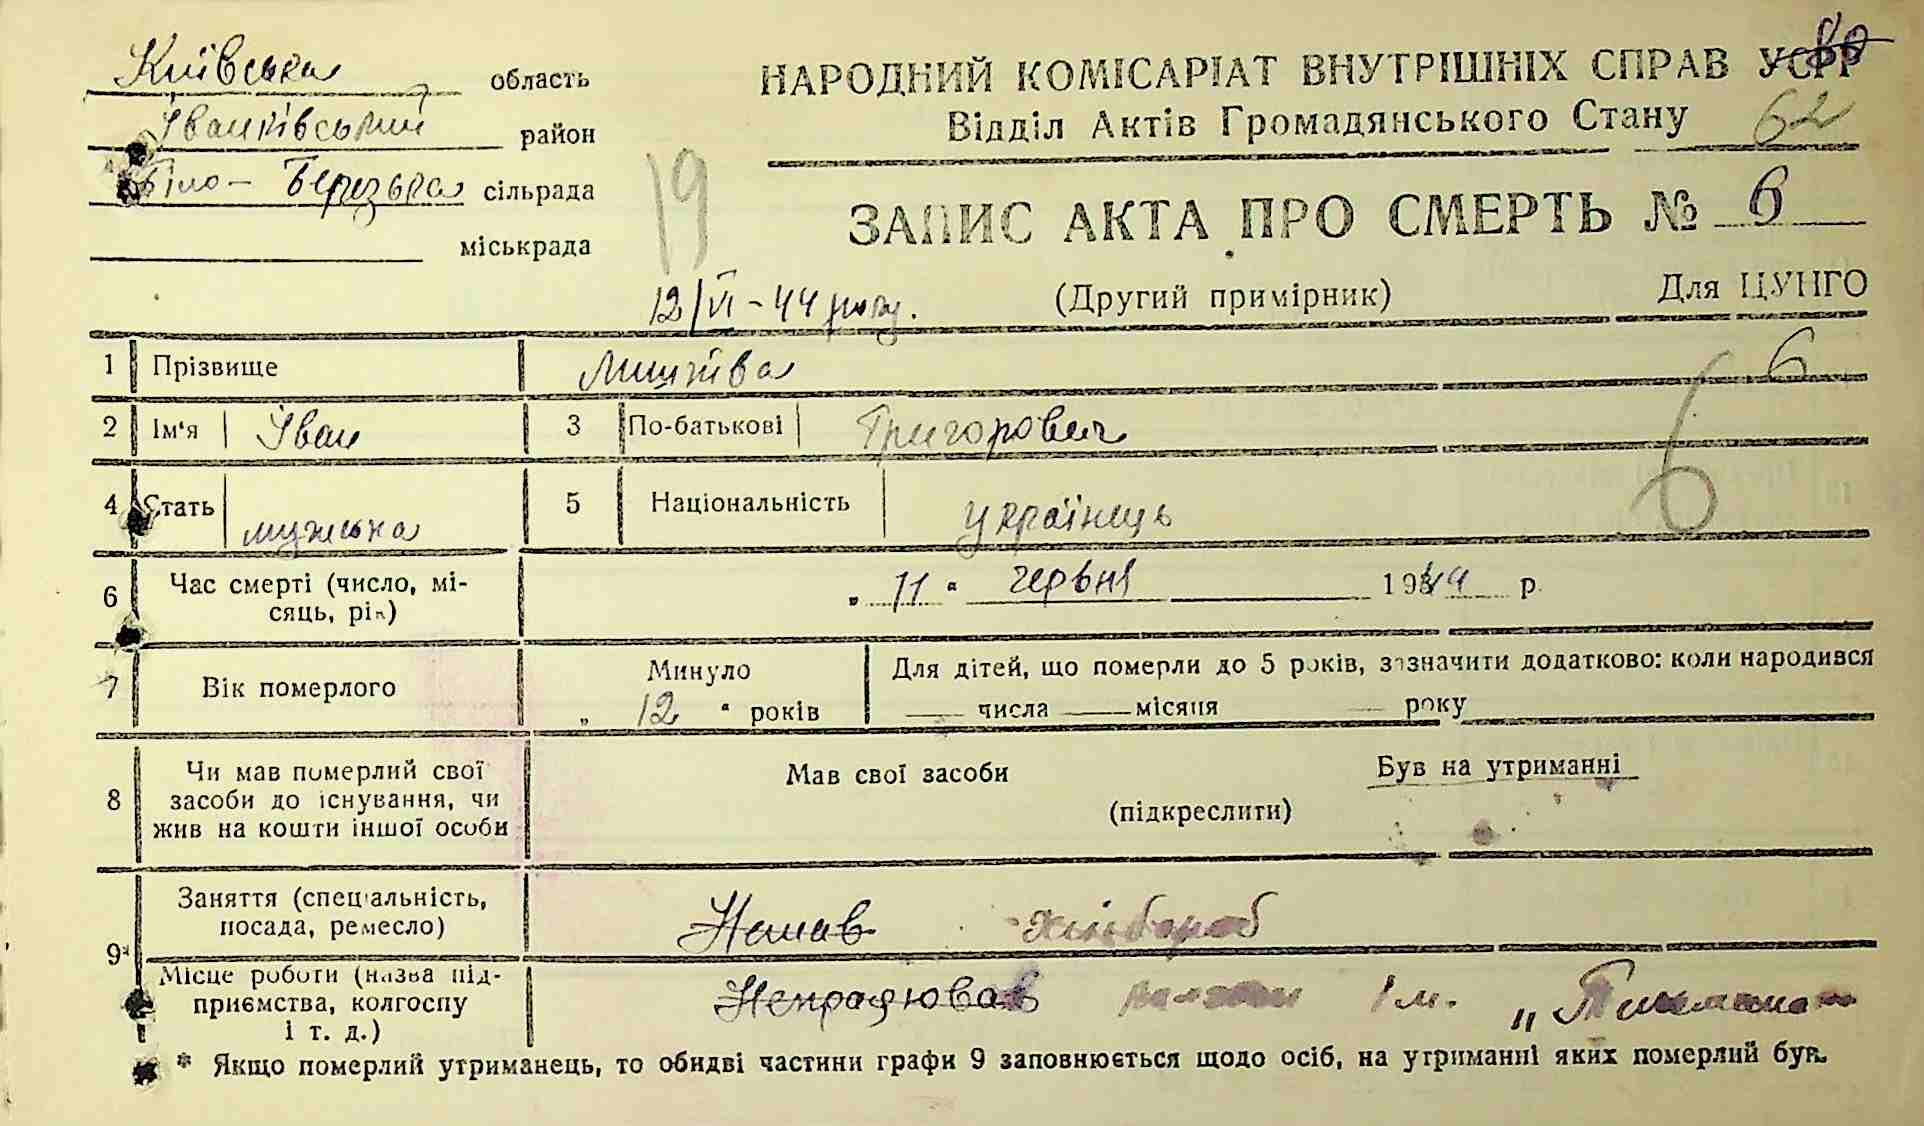 Київська область
Іванківський район
Біло-Березька сільрада
міськрада
НАРОДНИЙ КОМІСАРІАТ ВНУТРІШНІХ СПРАВ УСРР
Відділ Актів Громадянського Стану
62
19
ЗАПИС АКТА ПРО СМЕРТЬ № 6
12/VI-44 року.
(Другий примірник)
Для ЦУНГО
1 Прізвище
6
2 Ім'я Іван 3 По-батькові Григорович
6
4 Стать мужська 5 Національність українець
6 Час смерті (число, мі-
сяць, рік)
„ 11 " червня 1944 р.
7 Вік померлого
Минуло
„ 12 " років
Для дітей, що померли до 5 років, зазначити додатково: коли народився
числа місяця року
8 Чи мав померлий свої
засоби до існування, чи
жив на кошти іншої особи
Мав свої засоби Був на утриманні
(підкреслити)
9* Заняття (спеціальність,
посада, ремесло)
Немав хлібороб
Місце роботи (назва під-
приємства, колгоспу
і т. д.)
Непрацював ім.
* Якщо померлий утриманець, то обидві частини графи 9 заповнюється щодо осіб, на утриманні яких померлий був.